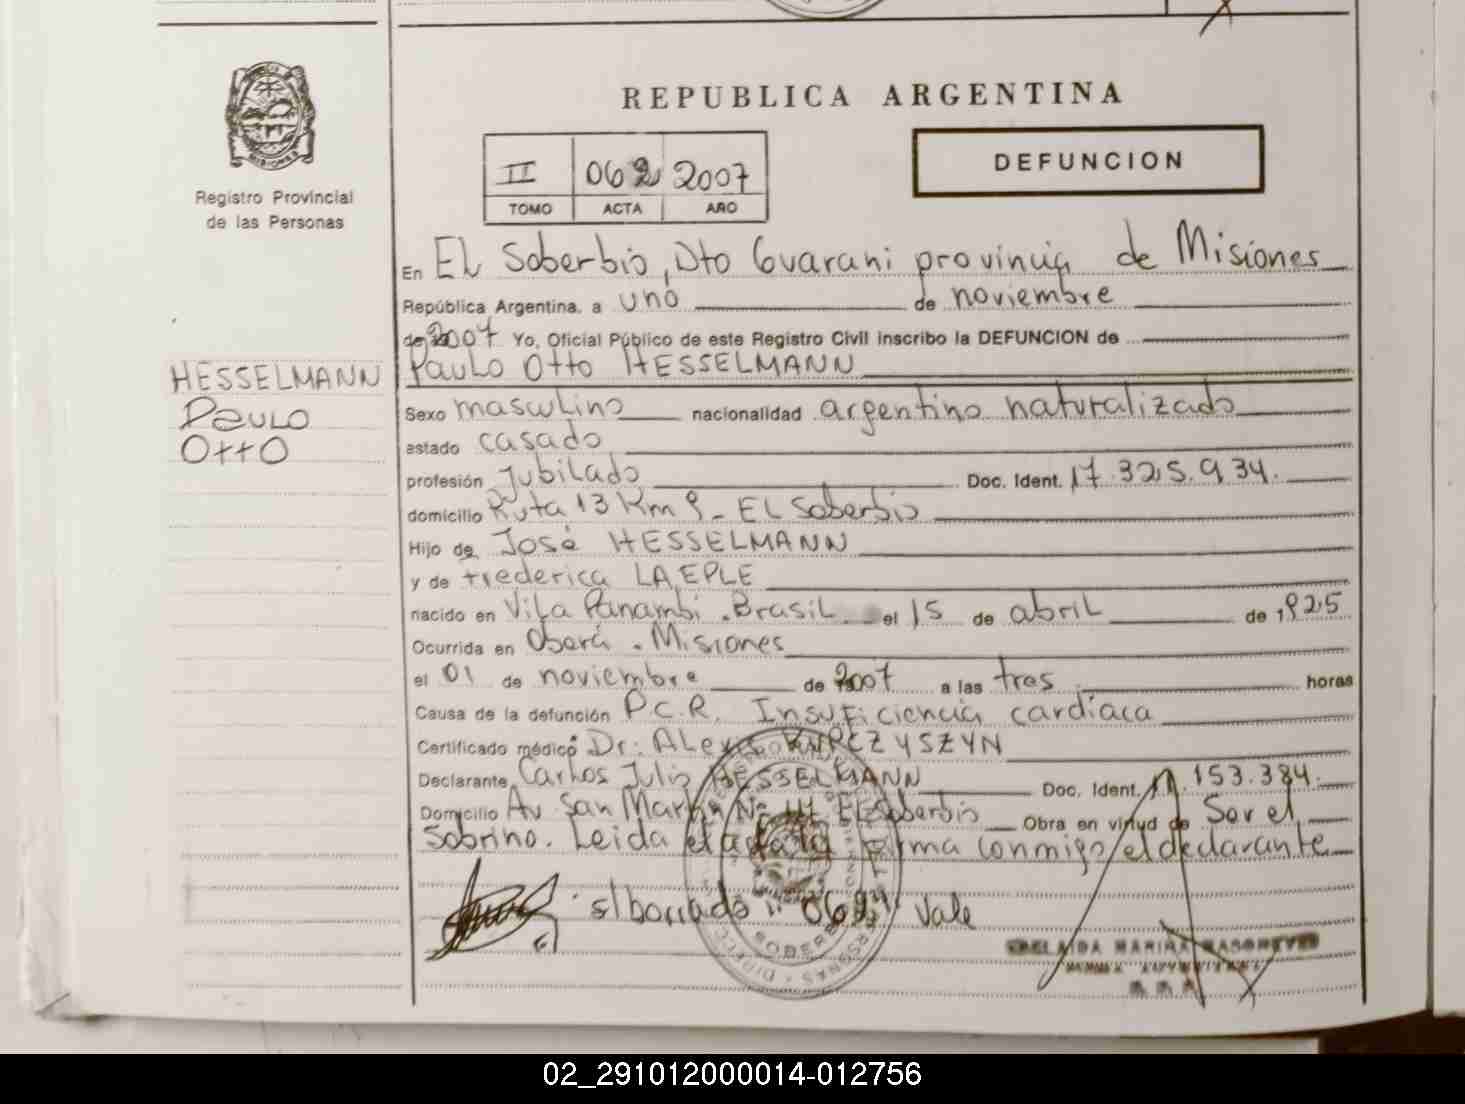 REPUBLICA ARGENTINA
DEFUNCION
II 062 2007
TOMO ACTA AÑO
Registro Provincial
de las Personas
MISIONES
En El Soberbio, Dto Guarani provincia de Misiones
República Argentina, a uno de noviembre
de 2007 Yo, Oficial Público de este Registro Civil inscribo la DEFUNCION de
Paulo Otto HESSELMANN
HESSELMANN
Paulo
Otto
Sexo masculino nacionalidad argentino naturalizado
estado casado
profesión Jubilado Doc. Ident. 17.325.934.
domicilio Ruta 13 Km 9 - El Soberbio
Hijo de José HESSELMANN
y de Frederica LAEPLE
nacido en Vila Panambi. Brasil el 15 de abril de 1925
Ocurrida en Oberá. Misiones
el 01 de noviembre de 2007 a las tres horas
Causa de la defunción P.C.R. Insuficiencia cardiaca
Certificado médico Dr: Alexis KURCZYSZYN
Declarante Carlos Julio HESSELMANN Doc. Ident. 153.384.
Domicilio Av San Martin El Soberbio Obra en virtud de Ser el
Sobrino. Leida el acta la firma conmigo el declarante
s/borrado: "062" Vale
MARINA
02_291012000014-012756